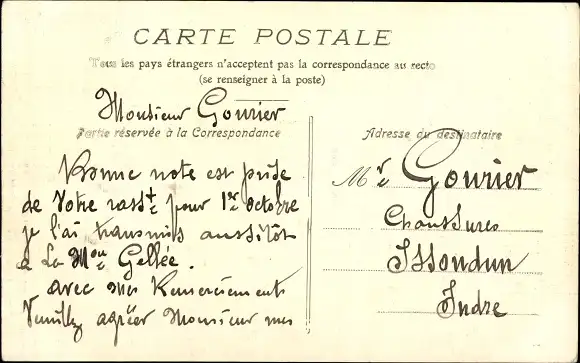 CARTE POSTALE
Tous les pays étrangers n'acceptent pas la correspondance au recto
(se renseigner à la poste)
Monsieur Gourier
Partie réservée à la Correspondance
Bonne note est prise
de Votre rasst pour 1er octobre
je l'ai transmis aussitôt
à La Mon Gellée.
avec mes Remerciements
Veuillez agréer Monsieur mes
Adresse du destinataire
Mr Gourier
Chaussures
Issoudun
Indre